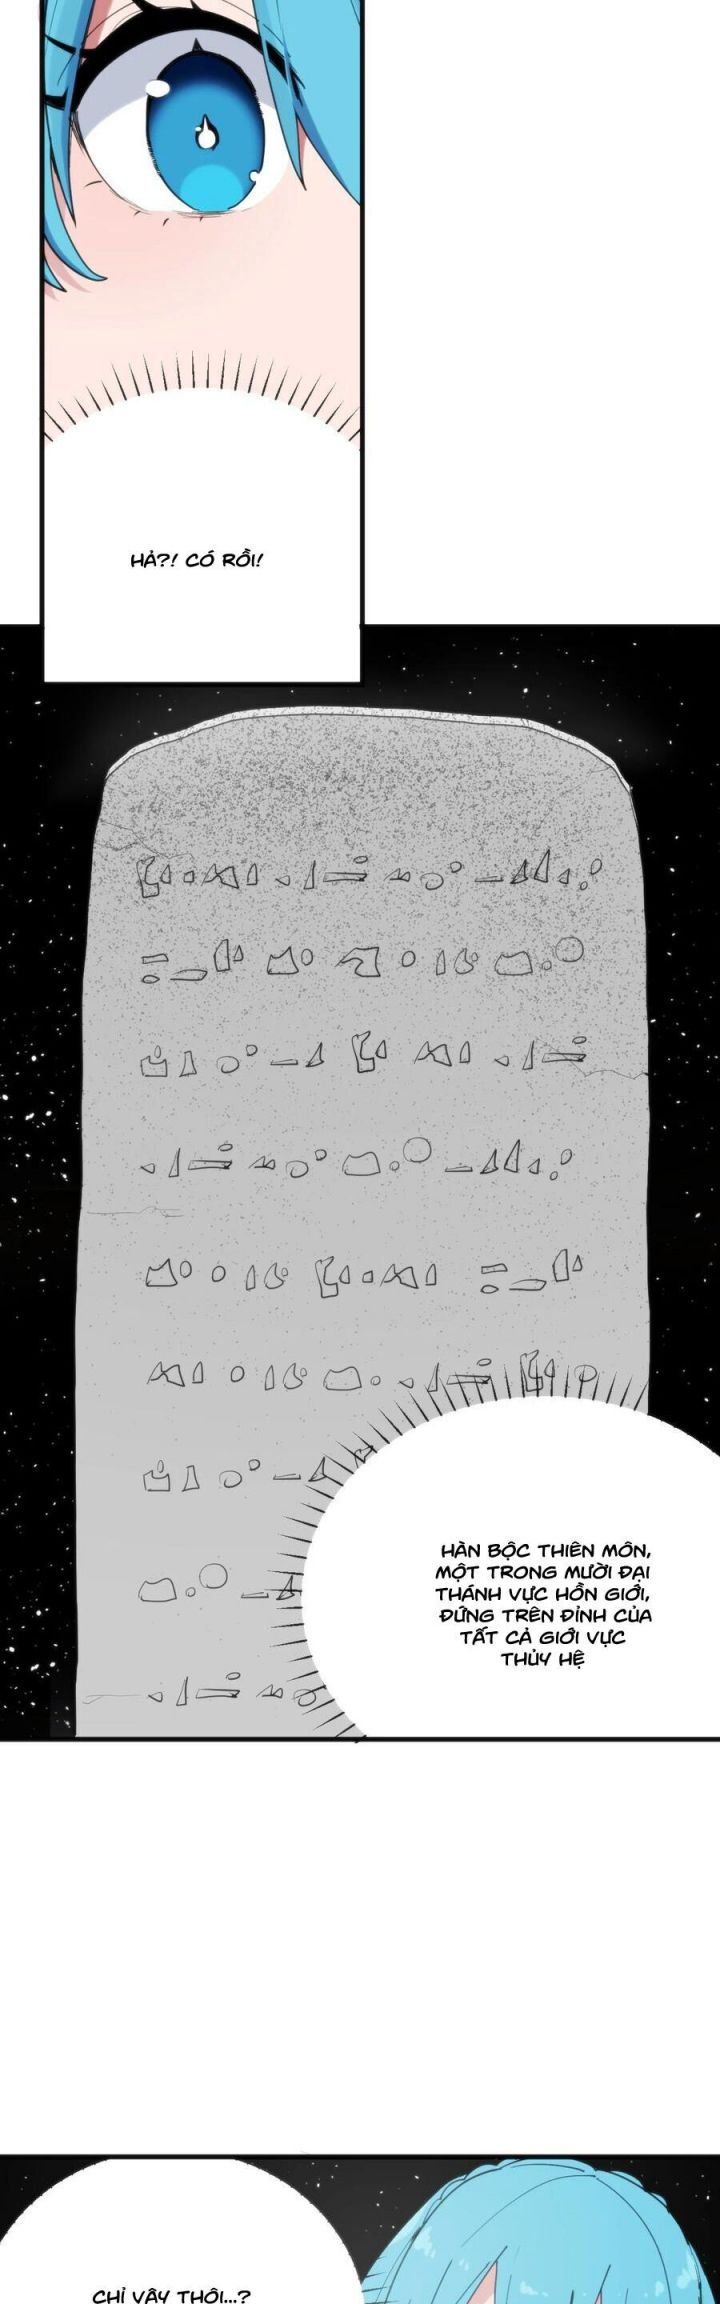 HẢ?! CÓ RỒI!
HÀN BỘC THIÊN MÔN,
MỘT TRONG MƯỜI ĐẠI
THÁNH VỰC HỒN GIỚI,
ĐỨNG TRÊN ĐỈNH CỦA
TẤT CẢ GIỚI VỰC
THỦY HỆ
CHỈ VẬY THÔI...?